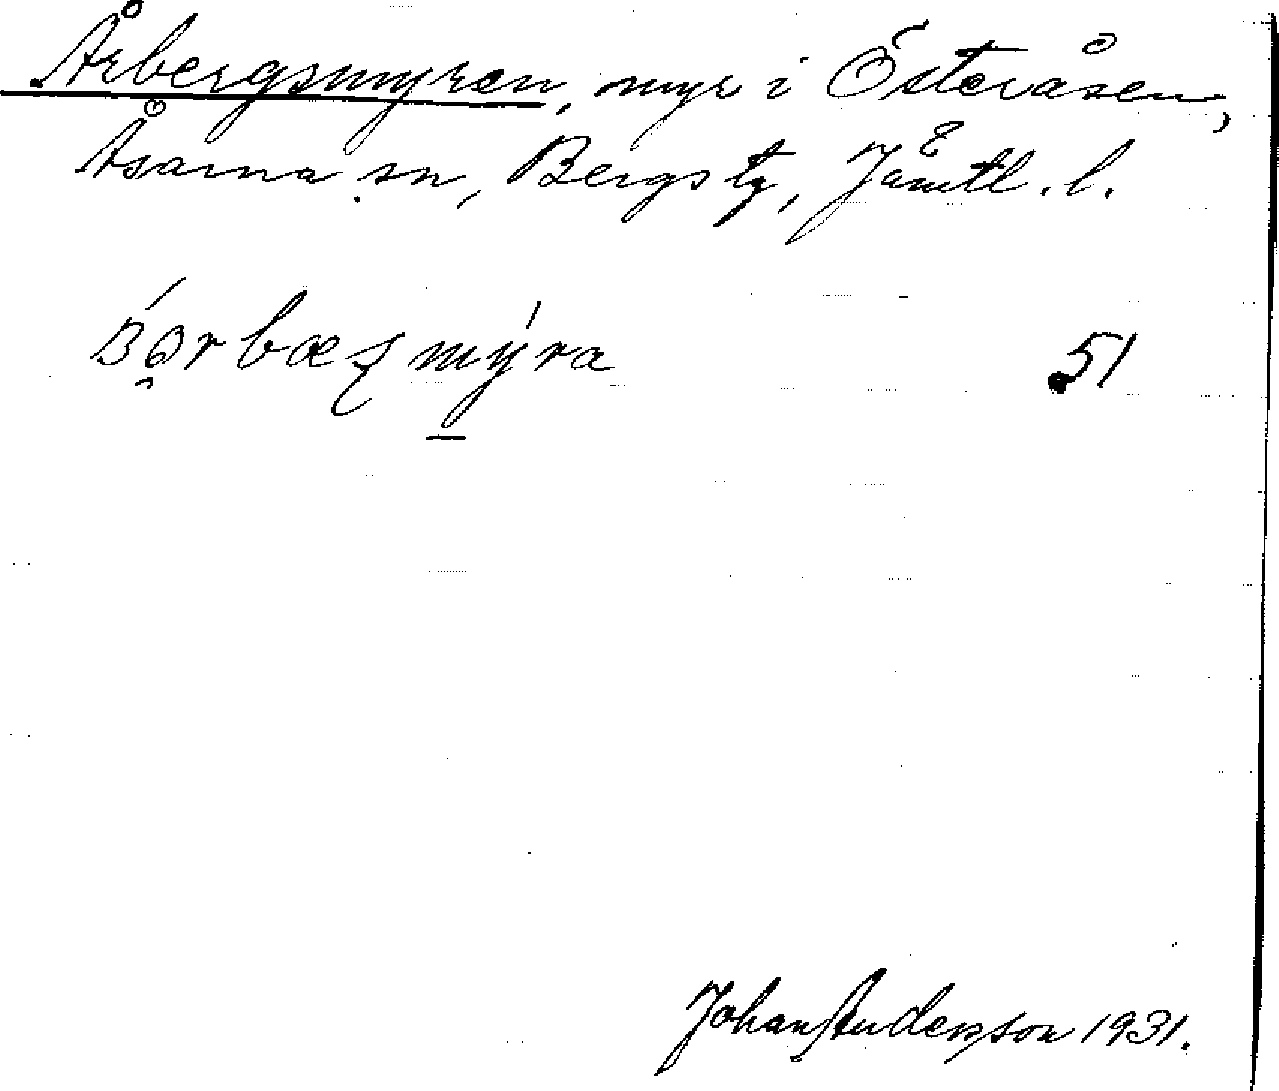 Årbergsmyren, myr i Österåsen,
Åsarna sn, Bergs tg, Jämtl. l.
51
Johan Andersson 1931.